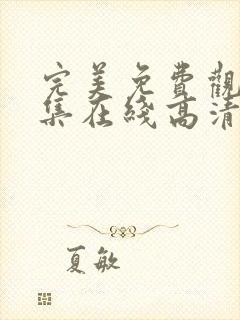 完美免費觀
集在綫高清
夏敏